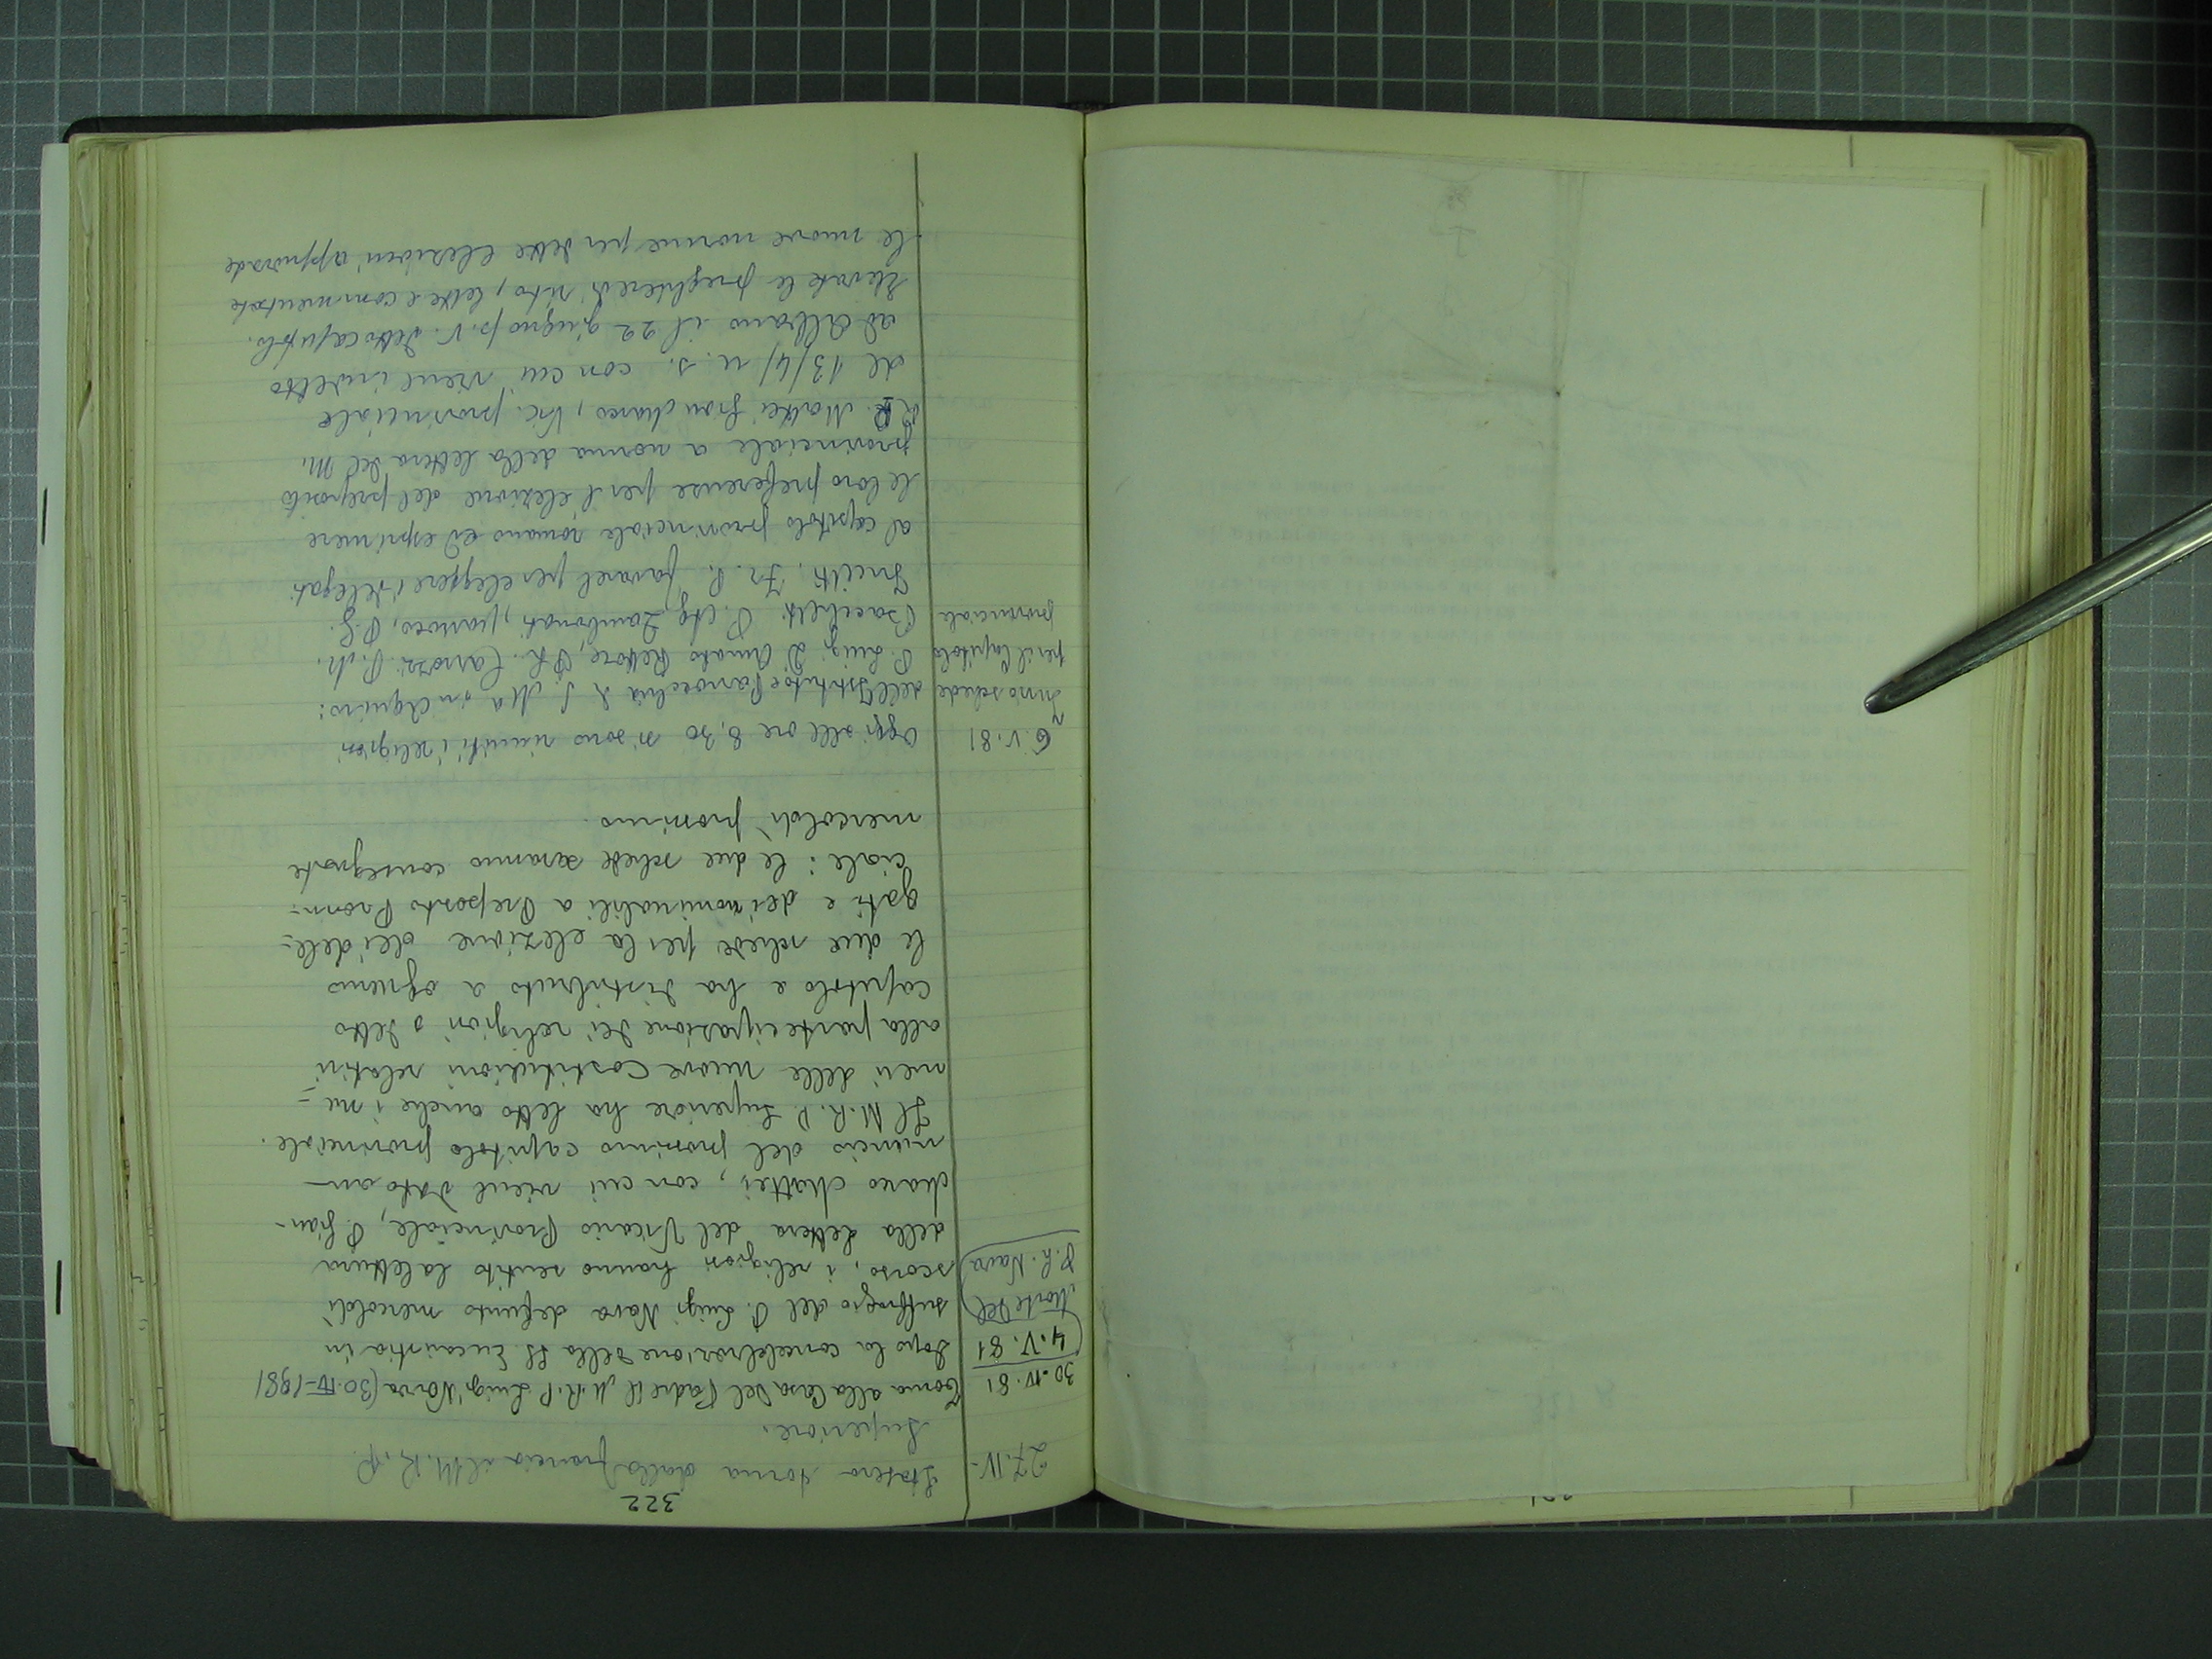 322
27.IV.
Stasera torna dalla Francia il M. R. P.
Superiore.
30-IV-81
Torna alla Casa del Padre il M.R.P. Luigi Nava (30-IV-1981
4.V.81
Morte del
P. L. Nava
Dopo la concelebrazione della SS. Eucaristia in
suffragio del P. Luigi Nava defunto mercoldì
scorso, i religiosi hanno sentito la lettura
della lettera del Vicario Provinciale, P. Gian-
Marco Mattei, con cui viene dato an-
nuncio del prossimo capitolo provinciale.
Il M.R.P. Superiore ha letto anche i nu=
meri delle nuove Costituzioni relativi
alla partecipazione dei religiosi a detto
capitolo e ha distribuito a ognuno
le due schede per la elezione dei dele=
gati e dei nominabili a Preposto Provin=
ciale: le due schede saranno consegnate
mercoldì prossimo.
6.V.81
Invio schede
per il Capitolo
provinciale
Oggi alle ore 8,30 si sono riuniti i religiosi
dell'Istituto e Parrocchia di S. Ma in Aquiro:
P. Luigi D'Amato Rettore, P. L. Carrozzi P. M.
Bacchetti P. Ag. Zambonati, parroco, P. G.
Fr. P. Favarel per eleggere i delegati
al capitolo provinciale romano ed esprimere
le loro preferenze per l'elezione del preposito
provinciale a norma della lettera del M.
R. P. Mattei Gian Marco, Vic. provinciale
del 13/4/ u. s. con cui viene indetto
ad Albano il 22 giugno p. v. detto capitolo.
Elevate le preghiere di rito, lette e commentate
le nuove norme per dette elezioni approvate